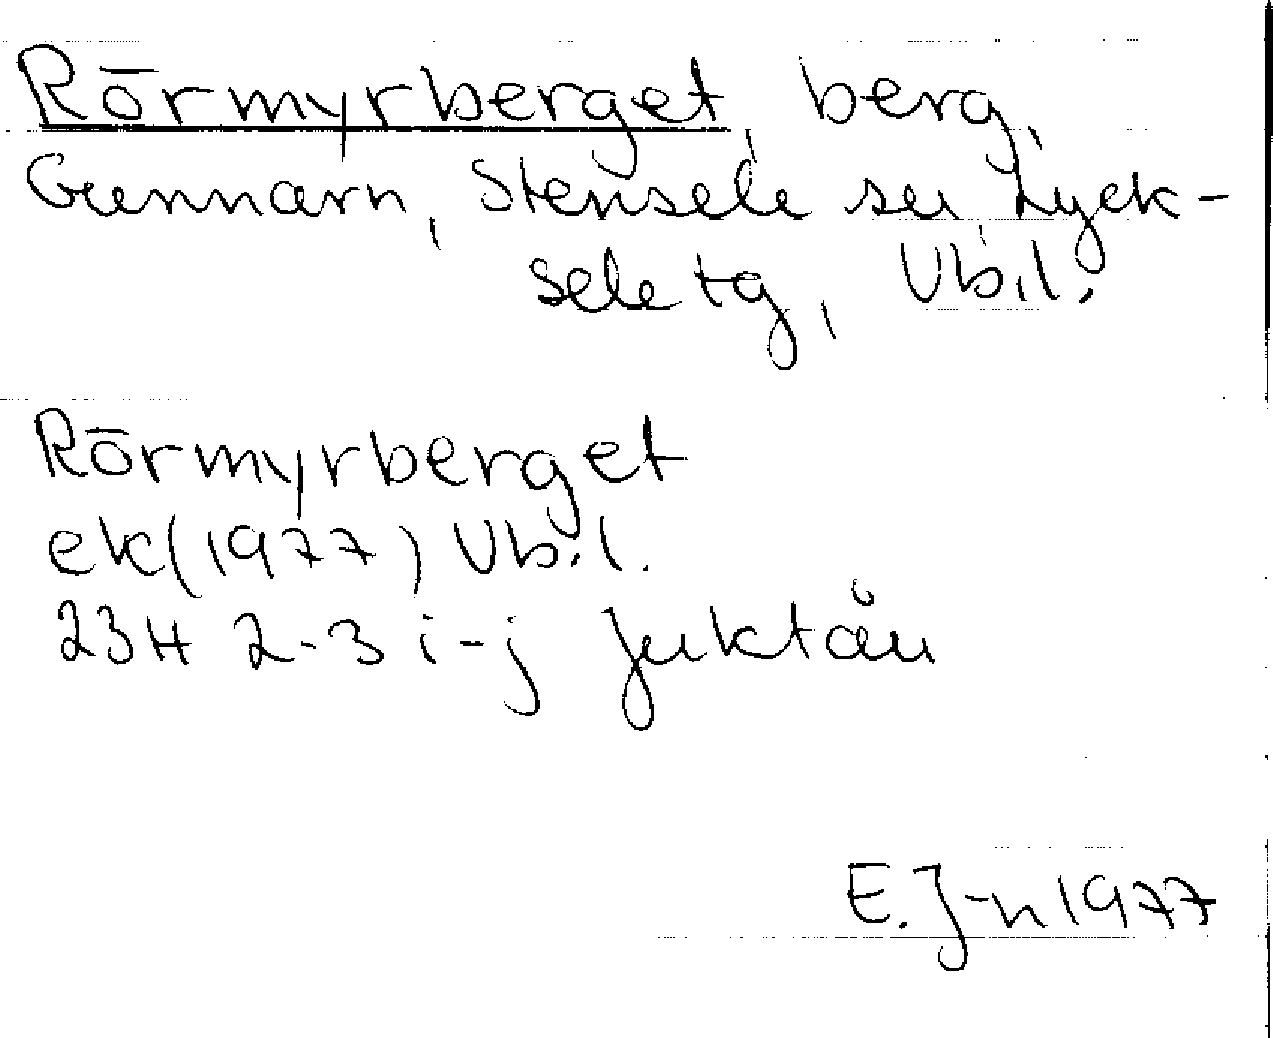 Rörmyrberget, berg,
Gunnarn, Stensele sn Lyck-
sele tg, Vb.l.
Rörmyrberget
ek(1977) Vb.l.
23H 2-3 i-j Juktån
E.J-n 1977